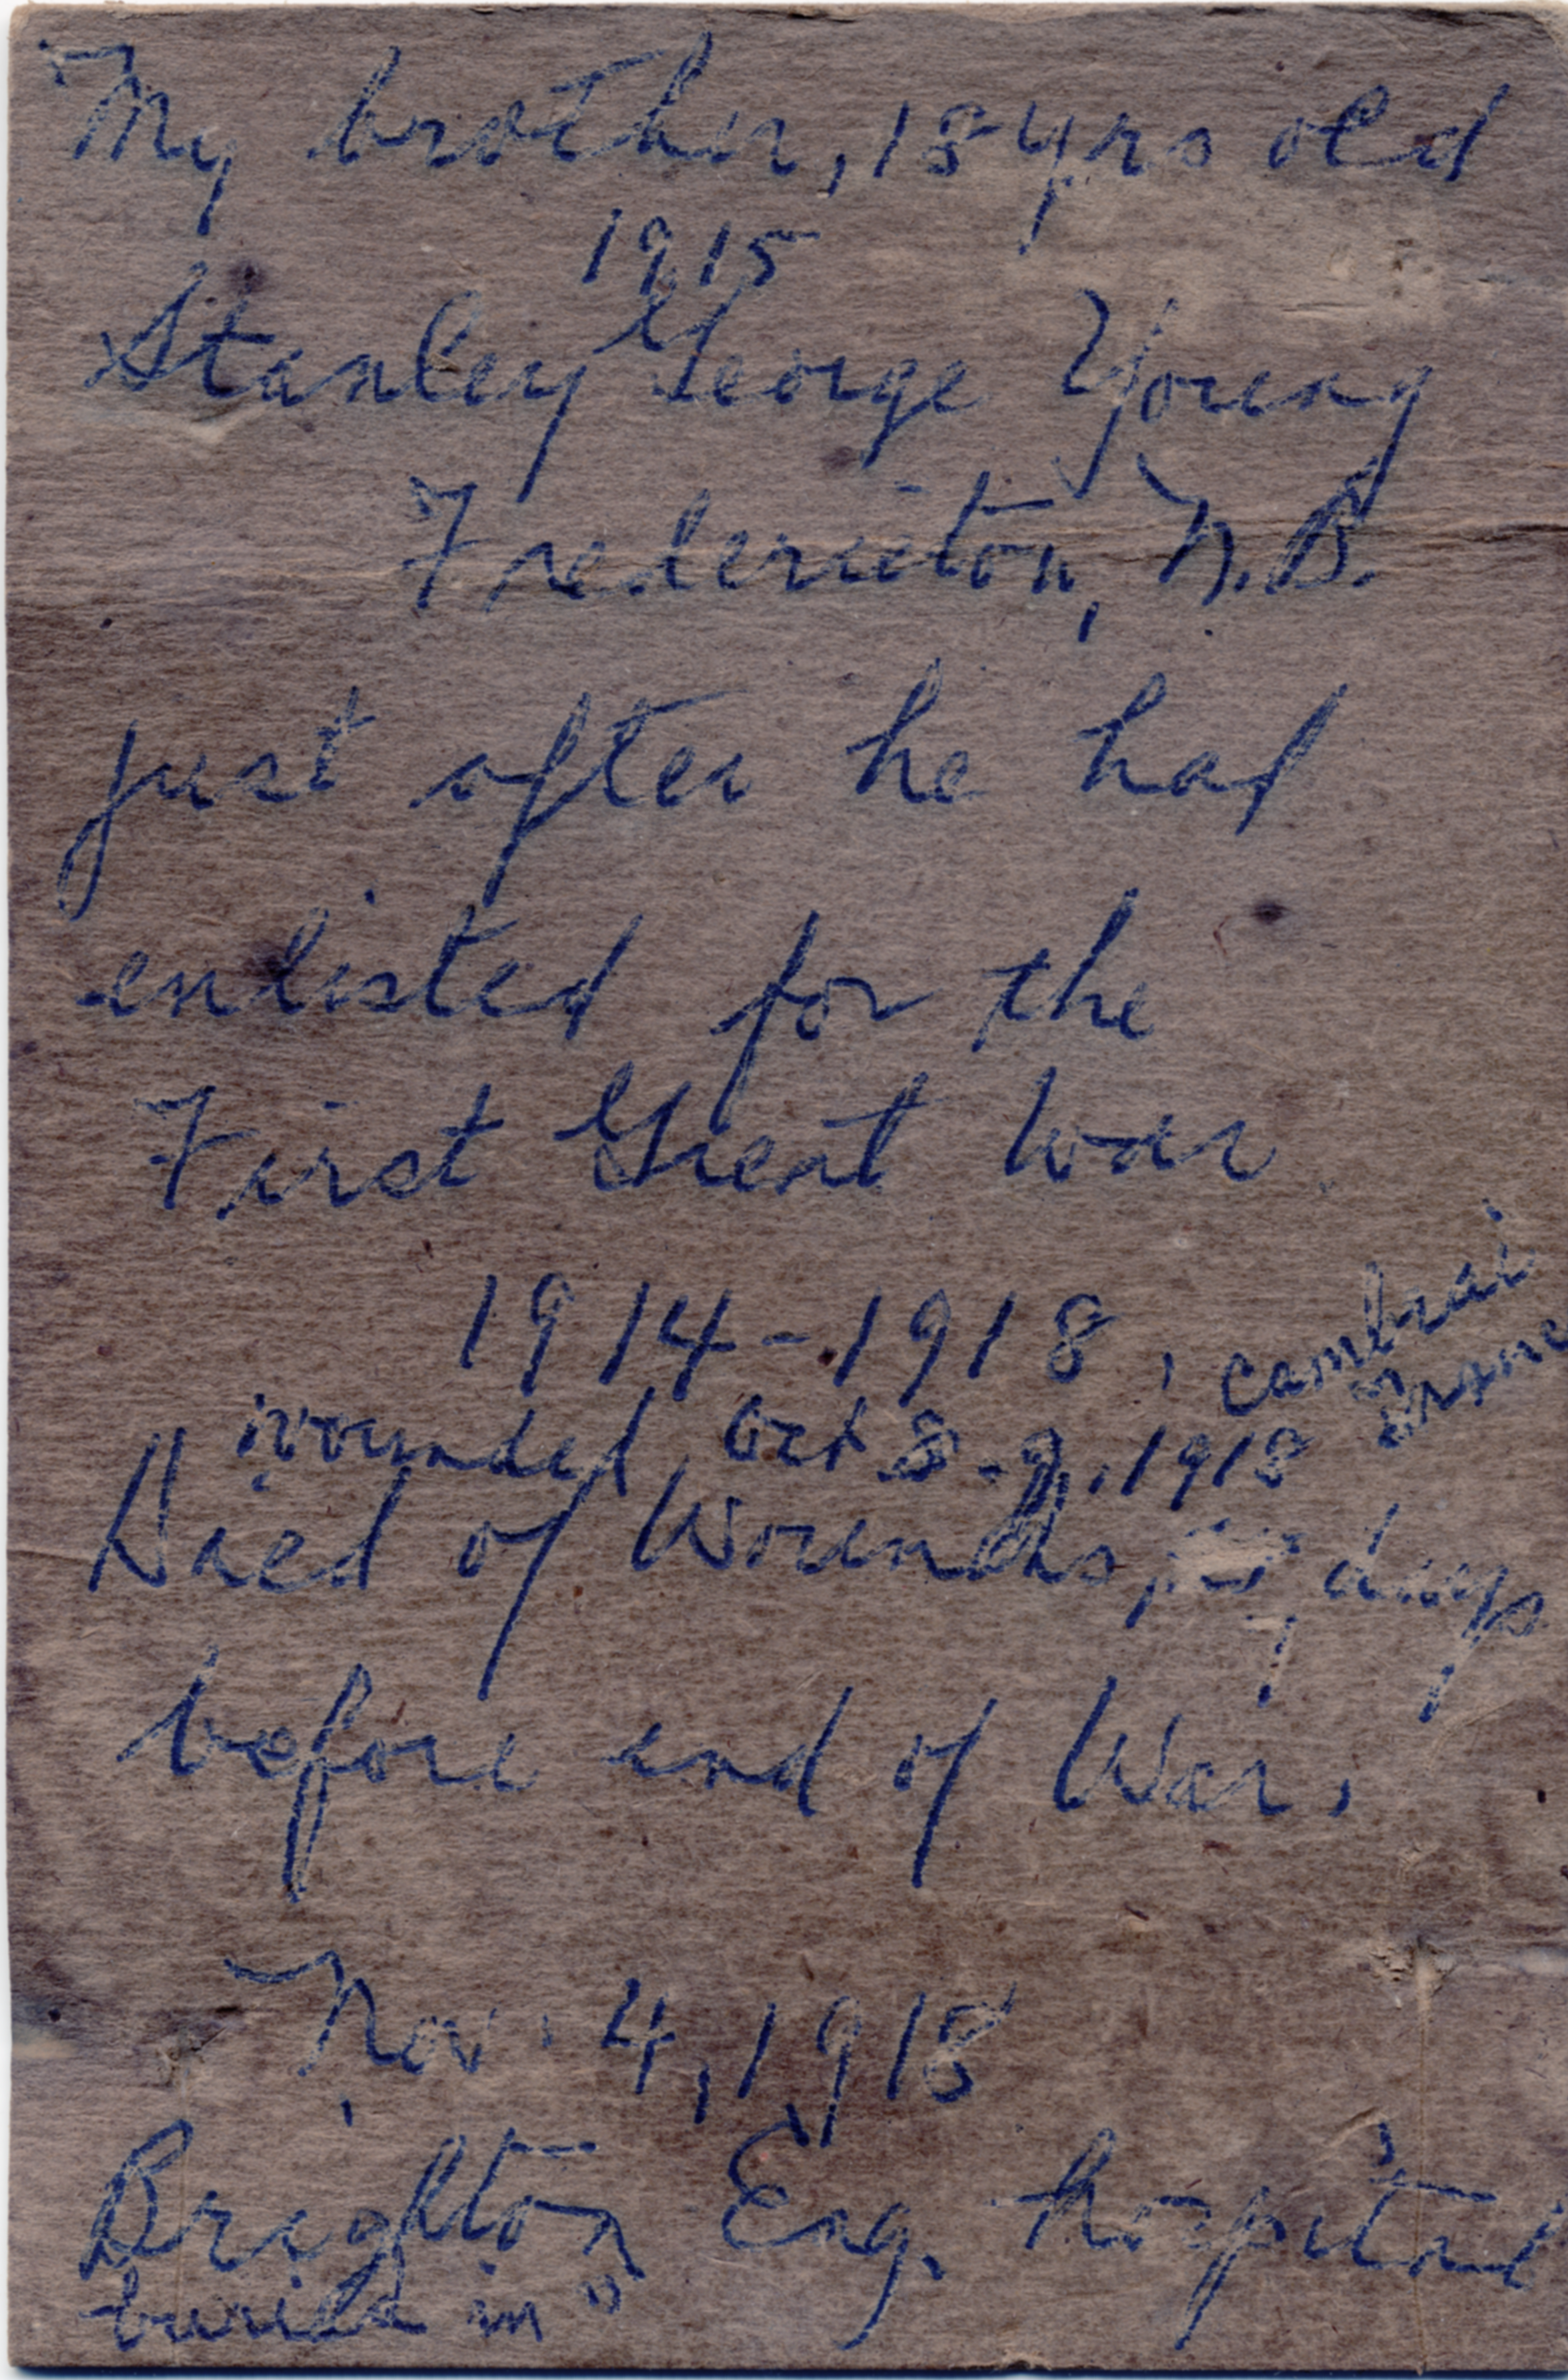 My brother, 18 yrs old
1915
Stanley George Young
Fredericton, N.B.
just after he had
enlisted for the
First Great War
1914-1918, Cambrai
France
wounded Oct 8-9, 1918
Died of Wounds, 7 days
before end of War,
Nov. 4, 1918
Brighton Eng. hospital
buried in "